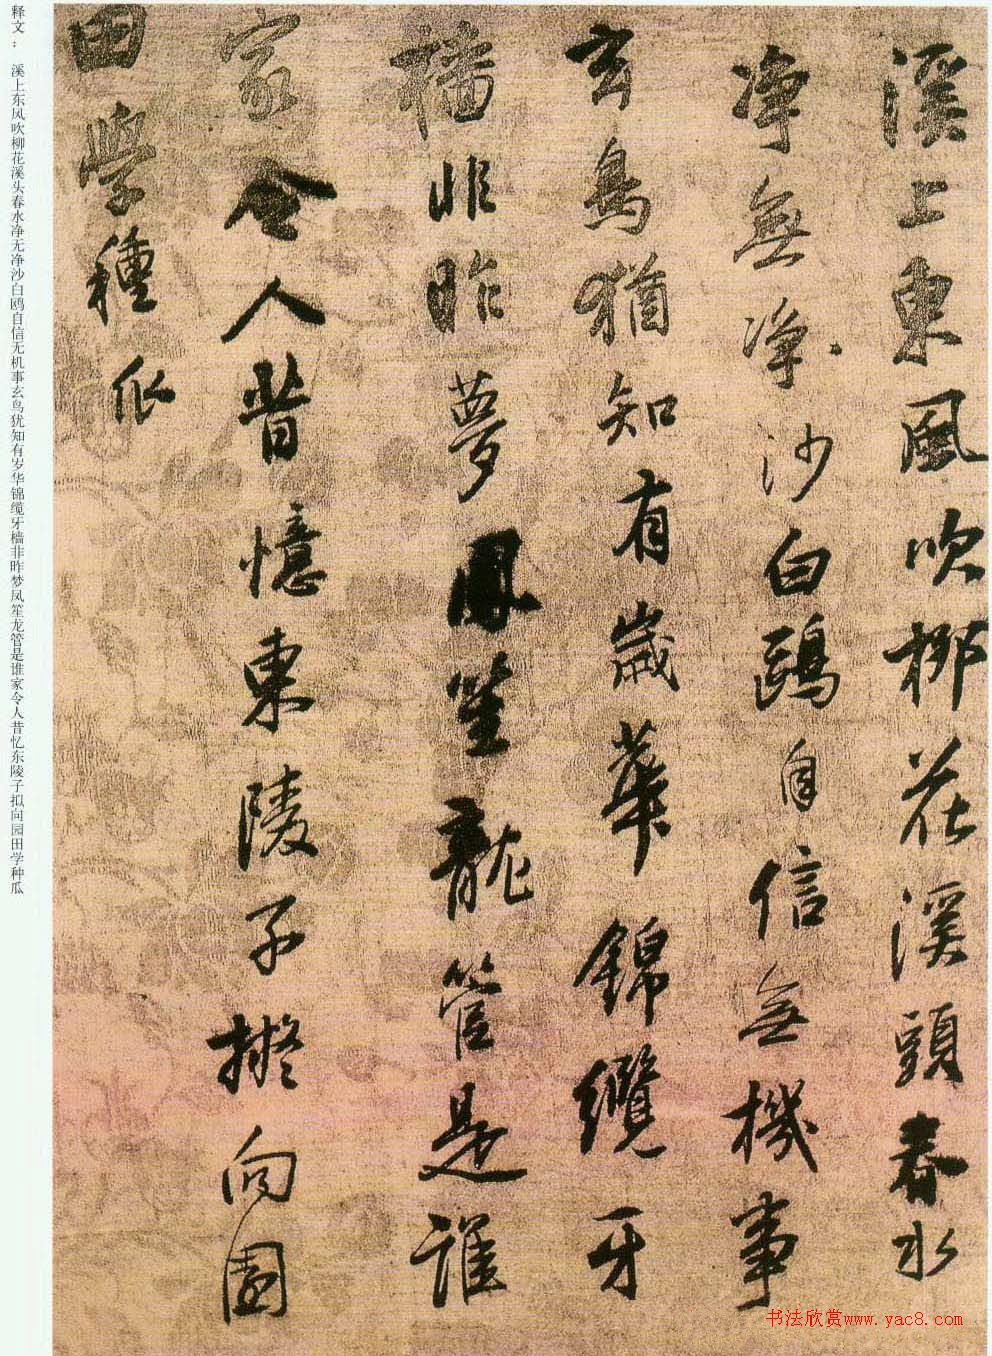 溪上東風吹柳花溪頭春水
净無净沙白鷗自信無機事
玄鳥猶知有歲華錦纜牙
檣非昨夢鳳笙龍管是誰
家令人昔憶東陵子擬向園
田學種瓜
释文：溪上东风吹柳花溪头春水净无净沙白鸥自信无机事玄鸟犹知有岁华锦缆牙樯非昨梦凤笙龙管是谁家令人昔忆东陵子拟向园田学种瓜
书法欣赏www.yac8.com